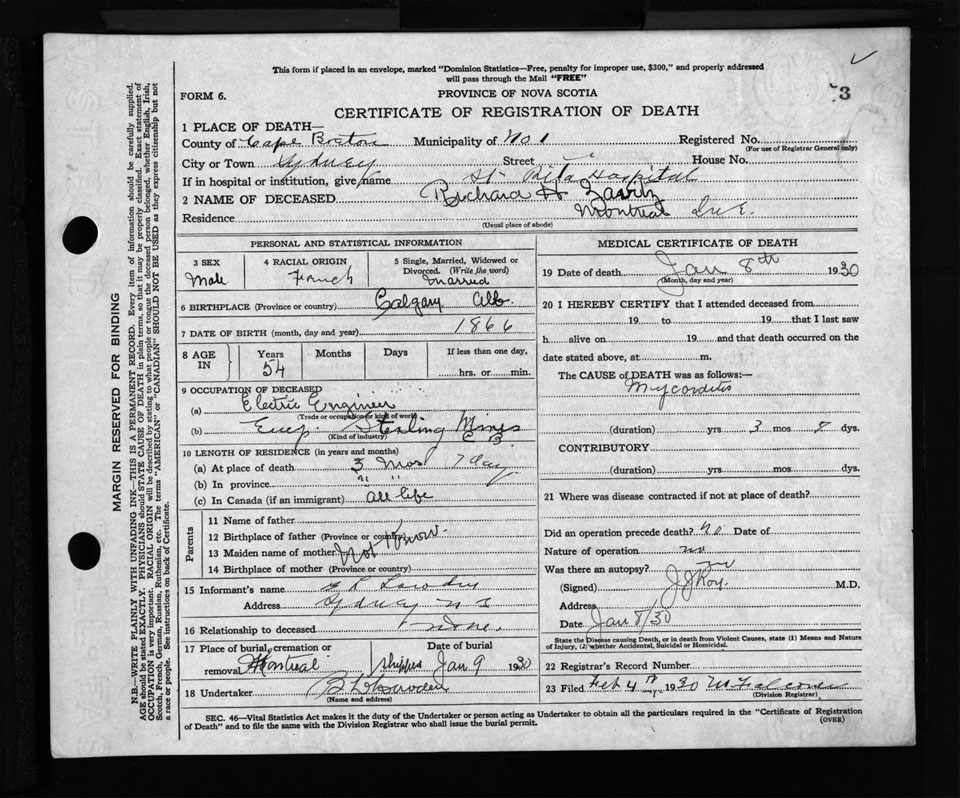 This form if placed in an envelope, marked "Dominion Statistics—Free, penalty for improper use, $300," and properly addressed
will pass through the Mail "FREE"
FORM 6.
PROVINCE OF NOVA SCOTIA
3
CERTIFICATE OF REGISTRATION OF DEATH
1 PLACE OF DEATH—
County of Cape Breton Municipality of No 1 Registered No.
(For use of Registrar General only)
City or Town Sydney Street House No.
If in hospital or institution, give name St Rita Hospital
2 NAME OF DECEASED Richard H
Residence Montreal
(Usual place of abode)
PERSONAL AND STATISTICAL INFORMATION
3 SEX
Male
4 RACIAL ORIGIN
French
5 Single, Married, Widowed or
Divorced. (Write the word)
Married
6 BIRTHPLACE (Province or country) Calgary Alb.
7 DATE OF BIRTH (month, day and year) 1866
8 AGE IN Years Months Days If less than one day,
54 hrs. or min.
9 OCCUPATION OF DECEASED
(a) Electric Engineer
(Trade or occupation or kind of work)
(b) Emp. Sterling Mines
C B.
(Kind of industry)
10 LENGTH OF RESIDENCE (in years and months)
(a) At place of death 3 Mos 7 day
(b) In province " "
(c) In Canada (if an immigrant) all life
Parents
11 Name of father
12 Birthplace of father (Province or country)
13 Maiden name of mother Not Know.
14 Birthplace of mother (Province or country)
15 Informant's name
Address Sydney N S
16 Relationship to deceased none.
17 Place of burial, cremation or
removal Montreal
Date of burial
shipped Jan 9 1930
18 Undertaker
(Name and address)
MEDICAL CERTIFICATE OF DEATH
19 Date of death Jan 8th 1930
(Month, day and year)
20 I HEREBY CERTIFY that I attended deceased from
19 to 19 that I last saw
h alive on 19 and that death occurred on the
date stated above, at m.
The CAUSE of DEATH was as follows:—
(duration) yrs 3 mos dys.
CONTRIBUTORY
(duration) yrs mos dys.
21 Where was disease contracted if not at place of death?
Did an operation precede death? No Date of
Nature of operation no
Was there an autopsy? no
(Signed) J J Roy. M.D.
Address
Date Jan 8/30
State the Disease causing Death, or in death from Violent Causes, state (1) Means and Nature
of Injury, (2) whether Accidental, Suicidal or Homicidal.
22 Registrar's Record Number
23 Filed Feb 4th 1930
(Division Registrar)
SEC. 46—Vital Statistics Act makes it the duty of the Undertaker or person acting as Undertaker to obtain all the particulars required in the "Certificate of Registration
of Death" and to file the same with the Division Registrar who shall issue the burial permit.
(OVER)
MARGIN RESERVED FOR BINDING
N.B.—WRITE PLAINLY WITH UNFADING INK—THIS IS A PERMANENT RECORD. Every item of information should be carefully supplied.
AGE should be stated EXACTLY. PHYSICIANS should STATE CAUSE OF DEATH in plain terms, so that it may be properly classified. Exact statement of
OCCUPATION is very important. RACIAL ORIGIN will be described by stating to what people or tongue the deceased person belonged, whether English, Irish,
Scotch, French, German, Russian, Ruthenian, etc. The terms "AMERICAN" or "CANADIAN" SHOULD NOT BE USED as they express citizenship but not
a race or people. See instructions on back of Certificate.